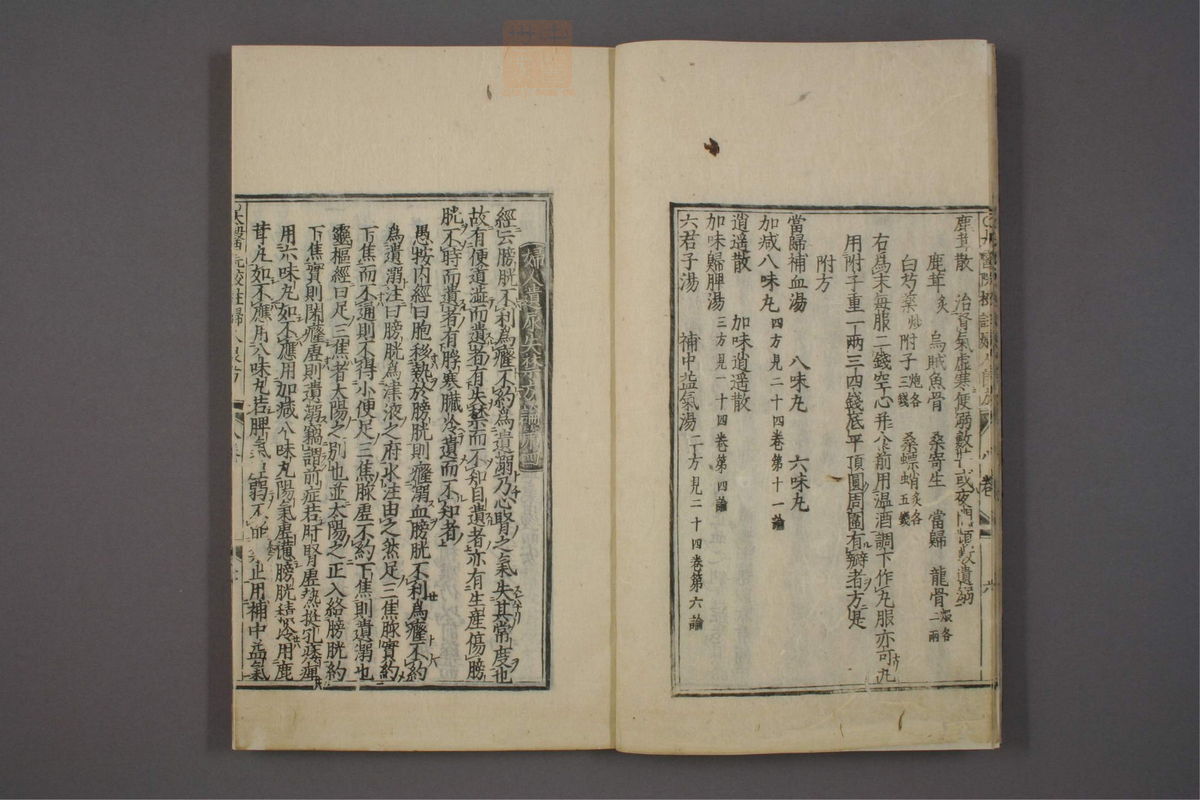 鹿茸散　治腎氣虛寒便溺數甚或夜間頻數遺溺
鹿茸炙　烏賊魚骨　桑寄生　當歸　龍骨煅各一兩
白芍藥炒　附子炮各三錢　桑螵蛸炙各五錢
右為末每服二錢空心并食前用温酒調下作丸服亦可凡
用附子重一兩三四錢底平頂圓周圍有瓣者方是
附方
當歸補血湯　八味丸　六味丸
加減八味丸四方見二十四卷第十一論
逍遥散　加味逍遥散
加味歸脾湯三方見一十四卷第四論
六君子湯　補中益氣湯二方見二十四卷第六論
婦人遺尿失禁方論第四
經云膀胱不利為癃不約為遺溺乃心腎之氣失其常度也
故有便道澁而遺者有失禁而不知自遺者亦有生産傷膀
胱不時而遺者有脬寒臟冷遺而不知者
愚按内經曰胞移熱於膀胱則癃溺血膀胱不利為癃不約
為遺溺注曰膀胱為津液之府水注由之然足三焦脉實約
下焦而不通則不得小便足三焦脉虛不約下焦則遺溺也
靈樞經曰足三焦者太陽之别也並太陽之正入絡膀胱約
下焦實則閉癃虛則遺溺竊謂前症若肝腎虛熱挺孔痿痺
用六味丸如不應用加減八味丸陽氣虛憊膀胱積冷用鹿
茸丸如不應用八味丸若脾氣虛弱不能 止用補中益氣
太醫院校註婦人良方